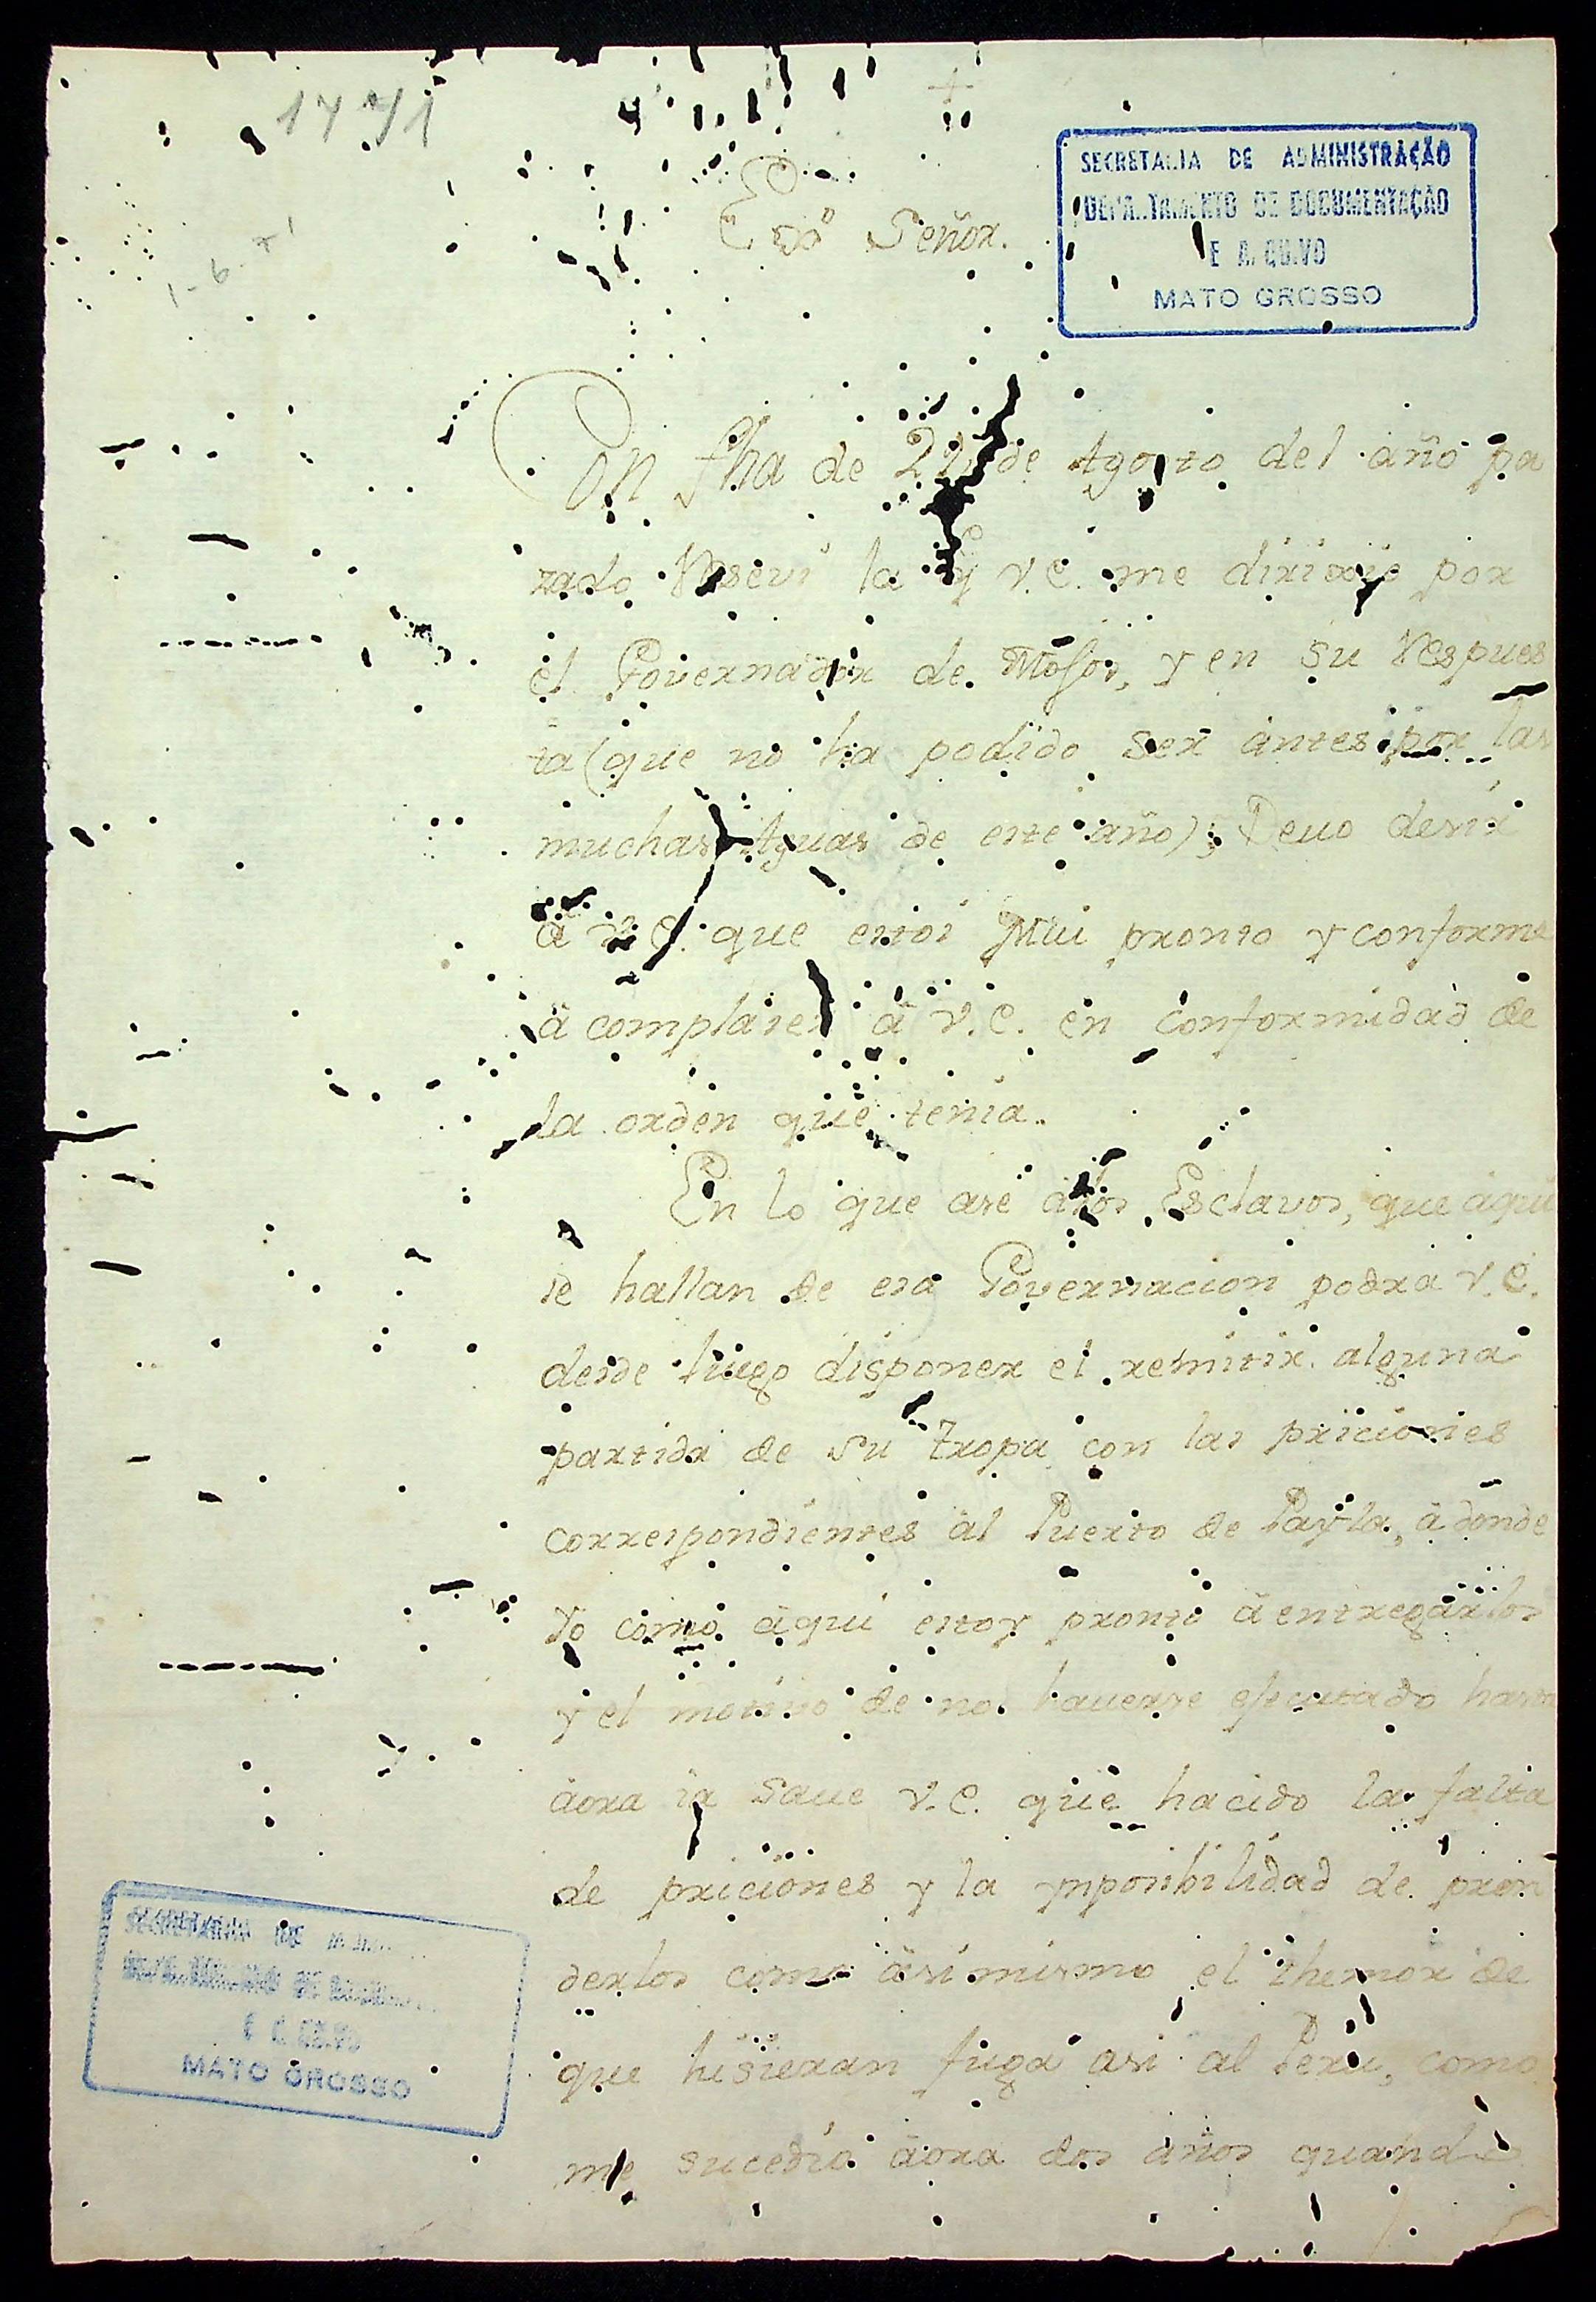 1771
+
SECRETARIA DE ADMINISTRAÇÃO
DEPARTAMENTO DE DOCUMENTAÇÃO
E ARQUIVO
MATO GROSSO
Exmo Señor.
1-6-71
Con fha de 22 de Agosto del año pa
zado Resevi la q V.E. me dirixio por
el Governador de Mojos, y en su Respues
ta (que no ha podido ser antes por las
muchas Aguas de este año); Devo desir
à V.E. que estoi Mui pronto y conforme
à complaser à V.E. en conformidad de
la orden que tenia.
En lo que ase a los Esclavos, que aqui
se hallan de esa Governacion podra V.E.
desde luego disponer el remitir alguna
partida de su tropa con las priciones
correspondientes al Puerto de Payla, à donde
Yo como aqui estoy pronto à entregarlos
y el motivo de no hauerse ejecutado hasta
àora ia saue V.E. que ha cido la falta
de priciones y la ymposibilidad de pren
derlos como asi mismo el themor de
que hisieran fuga asi al Peru, como
me sucedio àora dos años quando
SECRETARIA DE
MATO GROSSO